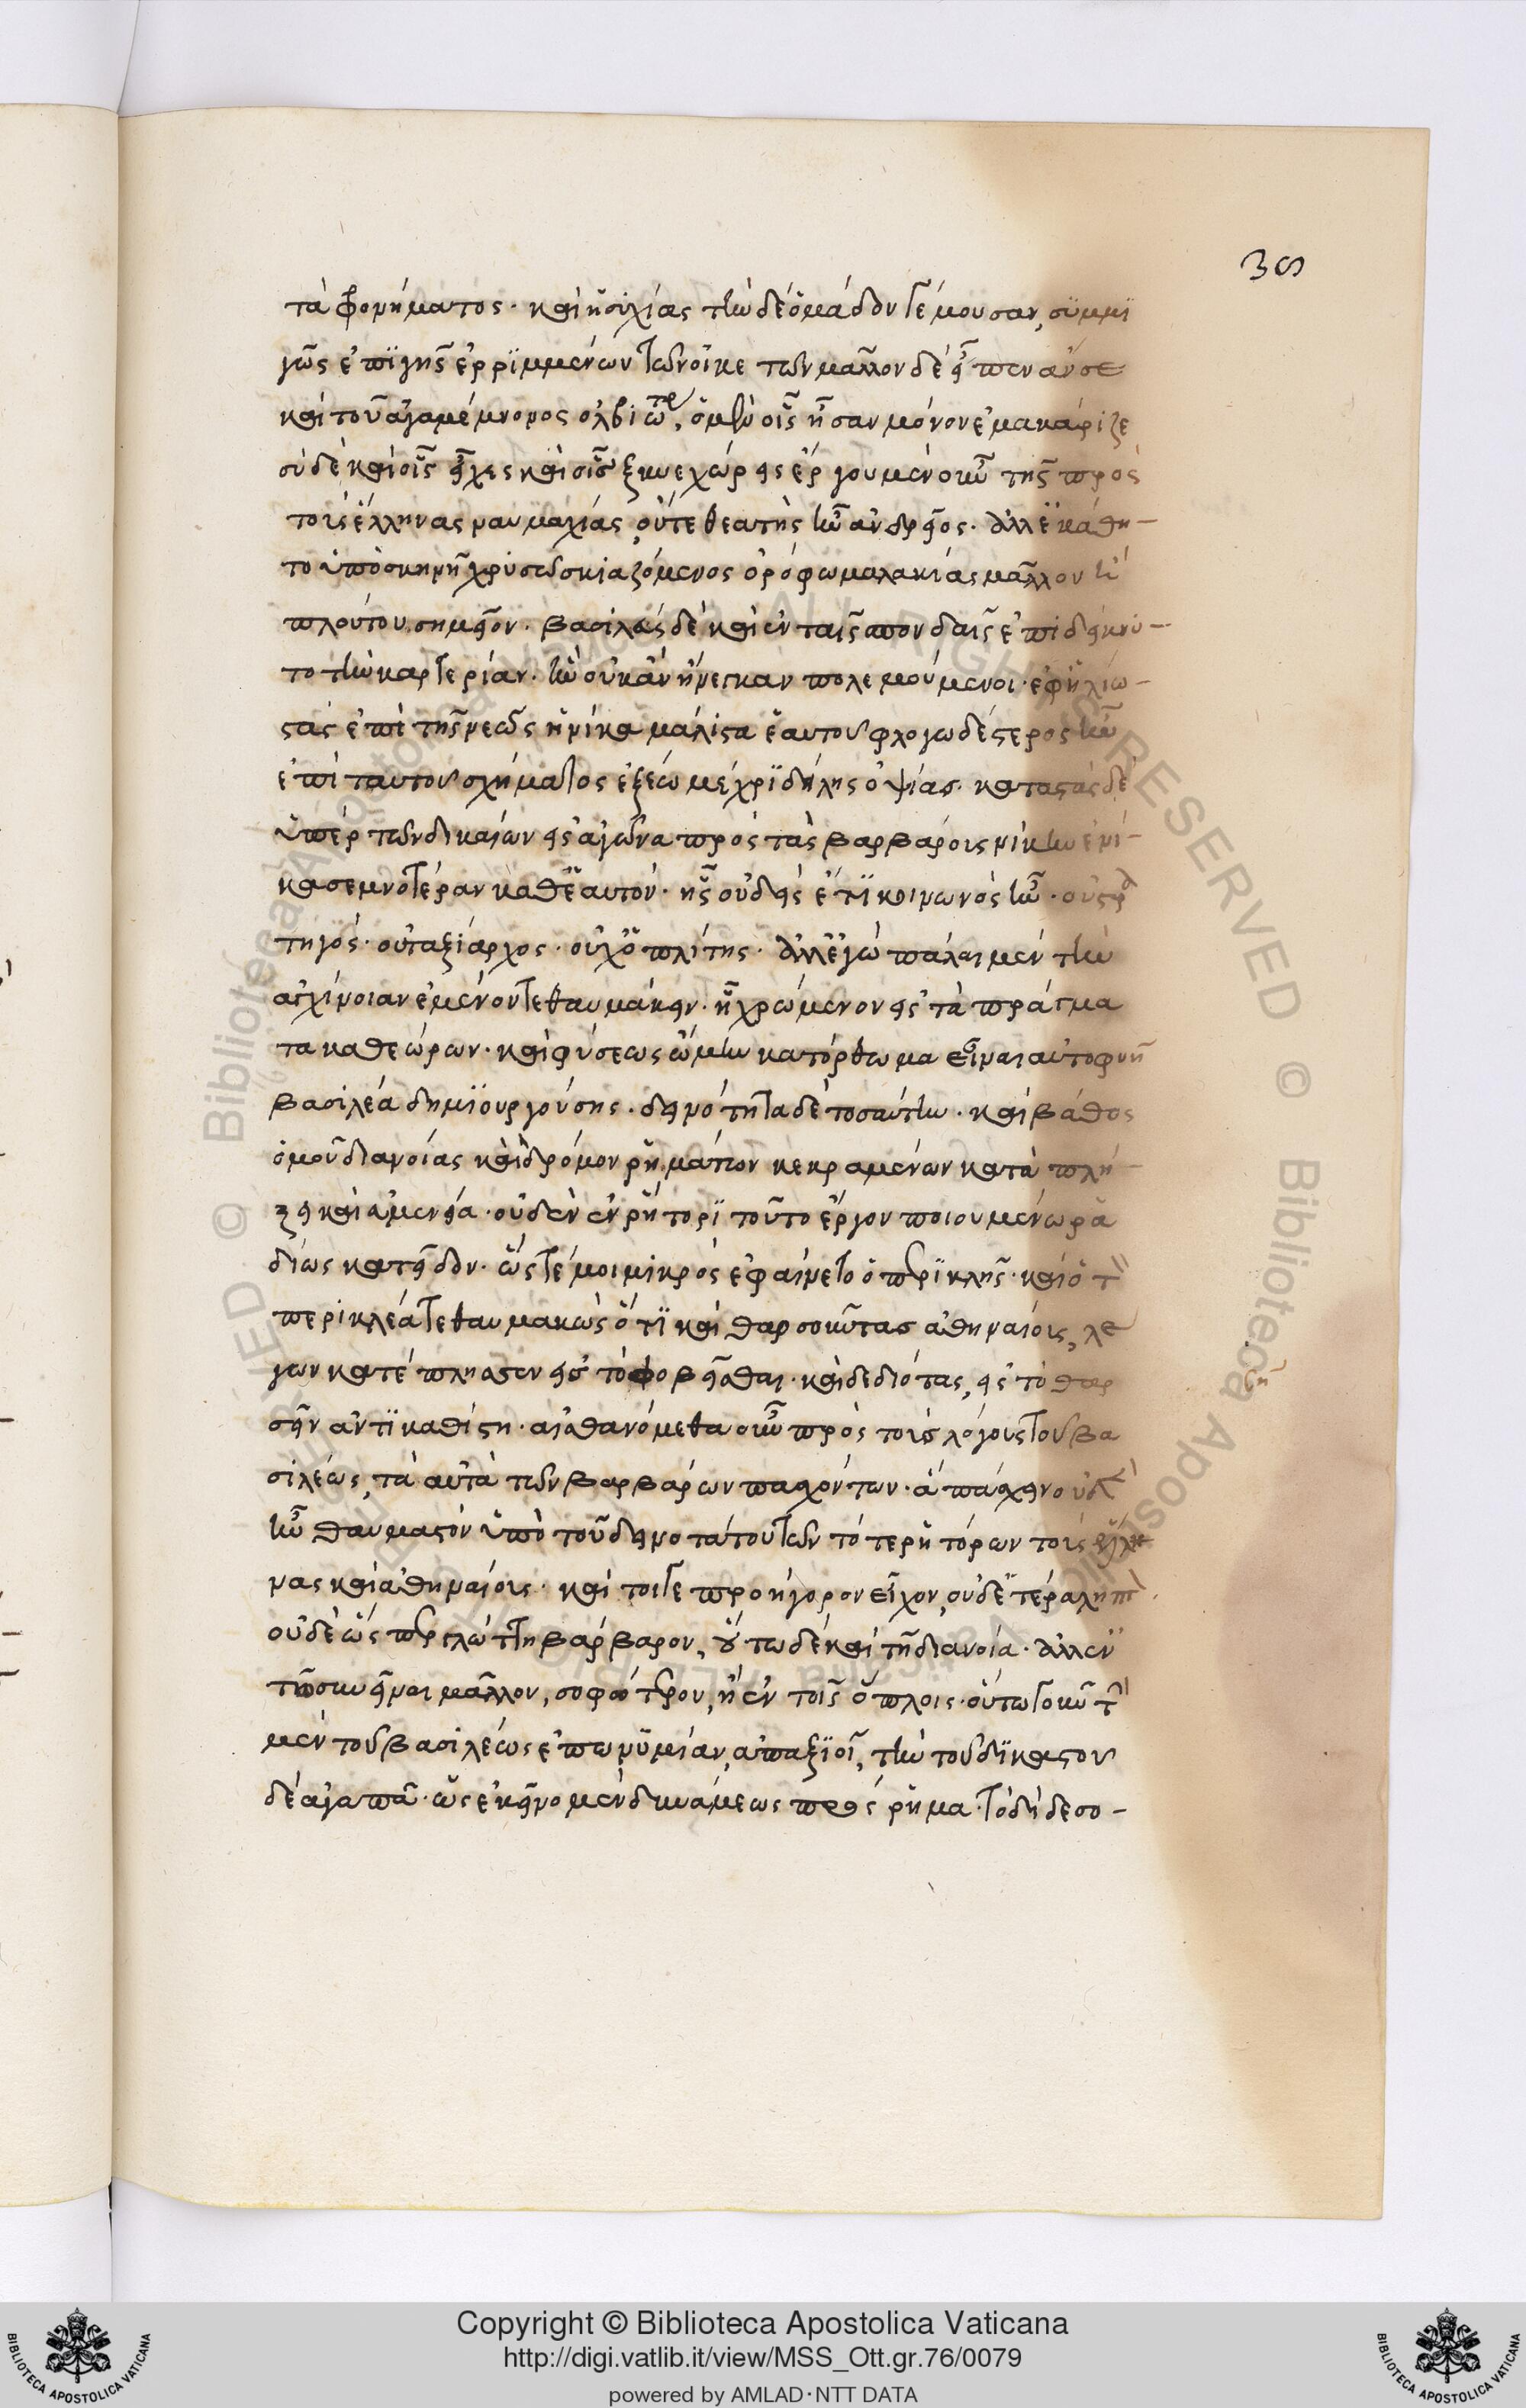 36
τὰ φρονήματος· καὶ ἡσυχίας τὴν δὲ ὁμάδων γέμουσαν, συμμι
γῶς ἐπὶ γῆς ἐρριμμένων τῶν οἰκετῶν μᾶλλον δὲ εἶπεν ἄν σε
καὶ τοῦ ἀγαμέμνονος ὀλβιώτερ, ὁ μὲν οἷς ἦσαν μόνον ἐμακάριζε
σὺ δὲ καὶ οἷς εἶχες καὶ οἷς ξυνεχώρεις ξέρ γου μὲν οὖν τῆς πρὸς
τοὺς ἕλληνας ναυμαχίας, οὔτε θεατὴς ἦν ἀνδρεῖος· ἀλλ' ἐκάθη–
το ὑπὸ σκηνῇ χρυσῶ σκιαζόμενος ὀρόφω μαλακίας μᾶλλον ἢ
πλούτου σημεῖον· βασιλεὺς δὲ καὶ ἐν ταῖς σπονδαῖς ἐπιδείκνυ–
το τὴν καρτερίαν· ἣν οὐκ ἂν ἤνεγκαν πολεμούμενοι· ἐφ' ἡλίω–
στὰς ἐπὶ τῆς νεὼς ἡνίκα μάλιστα ἑαυτοῦ φλογωδέστερος ἦν
ἐπὶ ταυτοῦ σχήματος ἐξ ἕω μέχρι δείλης ὀψίας· καταστὰς δὲ
ὑπὲρ τῶν δικαίων εἰς ἀγῶνα πρὸς τοὺς βαρβάρους νίκην ἐνί–
κα σεμνοτέραν καθ' ἑαυτόν· ἧς οὐδεὶς ἔτι κοινωνὸς ἦν· οὐ στρα
τηγός· οὐ ταξίαρχος· οὐχ ὁπλίτης· ἀλλ' ἐγὼ πάλαι μὲν τὴν
ἀγχίνοιαν ἐμένοντε θαυμάκειν· ᾗ χρώμενον εἰς τὰ πράγμα
τα καθεώρων· καὶ φύσεως ᾤμην κατόρθωμα εἶναι αὐτοφυῆ
βασιλέα δημιουργούσης· δεινότητα δὲ τοσαύτην· καὶ βάθος
ὁμοῦ διανοίας καὶ δρόμον ῥημάτων κεκραμένων κατὰ πλή–
ξει καὶ ἀμενεία· οὐδὲν ἐν ῥήτορι τοῦτο ἔργον ποιουμένω ρα
δίως κατεῖδον· ὥστέ μοι μικρὸς ἐφαίνετο ὁ περικλῆς· καὶ ὁ τ
περικλέα τεθαυμακὼς ὅτι καὶ θαρσοῦντας ἀθηναίους, λέ
γων κατέπλησσεν εἰς τὸ φοβεῖσθαι· καὶ δεδιότας, εἰς τὸ θαρ
σεῖν ἀντικαθίστη· αἰσθανόμεθα οὖν πρὸς τοὺς λόγους τοῦ βα
σιλέως, τὰ αὐτὰ τῶν βαρβάρων πασχόντων· ἃ πάσχειν οὐδὲ
ἦν θαυμαστὸν ὑπὸ τοῦ δεινοτάτου τῶν τότε ῥητόρων τοὺς ἕλλη
νας καὶ ἀθηναίους· καὶ τοι γε προήγορον εἶχον, οὐδετέρα ληπτ
οὐδὲ ὡς περ γλώττη βάρβαρον, οὕτω δὲ καὶ τῇ διανοία· ἀλλ' ἐν
τῷ συνεῖναι μᾶλλον, σοφώτερον, ἢ ἐν τοῖς ὅπλοις· οὕτω γοῦν τὴ
μὲν τοῦ βασιλέως ἐπωνυμίαν, ἀπαξιοῖ, τὴν τοῦ δικαστοῦ
δὲ ἀγαπᾷ· ὡς ἐκεῖνο μὲν δυνάμεως πρὸς ῥῆμα· τὸ δὴ δεσο–
Copyright © Biblioteca Apostolica Vaticana
http://digi.vatlib.it/view/MSS_Ott.gr.76/0079
powered by AMLAD·NTT DATA